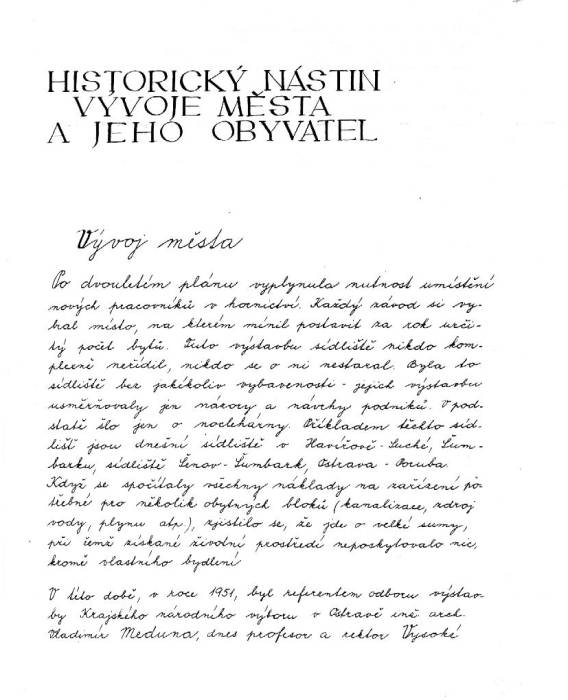 HISTORICKÝ NÁSTIN
VÝVOJE MĚSTA
A JEHO OBYVATEL
Vývoj města
Po dvouletém plánu vyplynula nutnost umístění
nových pracovníků v hornictví. Každý závod si vy-
bral místo, na kterém mínil postavit za rok urči-
tý počet bytů. Tuto výstavbu sídliště nikdo kom-
plexně neřídil, nikdo se o ni nestaral. Byla to
sídliště bez jakékoliv vybavenosti - jejich výstavbu
usměrňovaly jen názory a návrhy podniků. V pod-
statě šlo jen o noclehárny. Příkladem těchto síd-
lišť jsou dnešní sídliště v Havířově-Suché, Šum-
barku, sídliště Šenov-Šumbark, Ostrava-Poruba.
Když se spočítaly všechny náklady na zařízení po-
třebné pro několik obytných bloků (kanalizace, zdroj
vody, plynu atp.), zjistilo se, že jde o velké sumy,
při čemž získané životní prostředí neposkytovalo nic,
kromě vlastního bydlení
V této době, v roce 1951, byl referentem odboru výstav-
by Krajského národního výboru v Ostravě inž. arch.
Vladimír Meduna, dnes profesor a rektor Vysoké